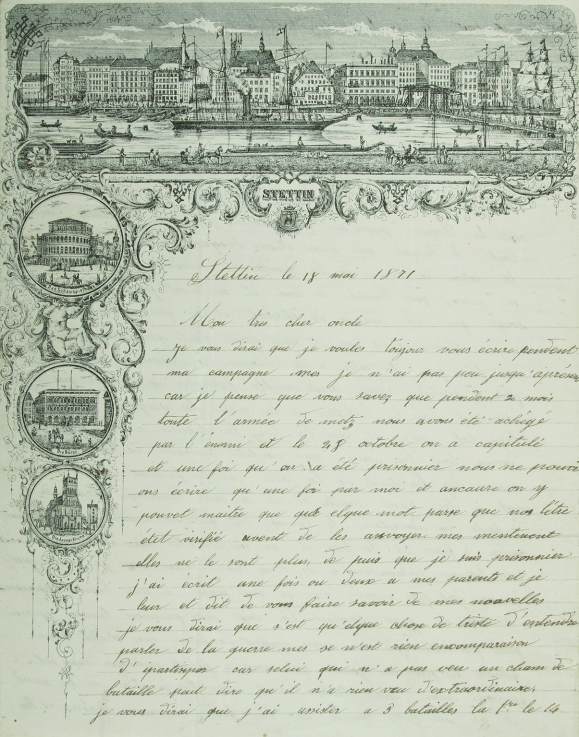 STETTIN
Stettin le 18 mai 1871
Mon très cher oncle
je vous dirai que je voules toujour vous écrire pendent
ma campagne mes je n'ai pas peu jusqu'aprésen
car je pense que vous savez que pendent 2 mois
toute l'armée de metz nous avons été aciégé
par l'énemi et le 28 octobre on a capitulé
et une foi qu'on a été prisonnier nous ne pouvi
ons écrire qu'une foi par moi et ancaure on y
pouvet maitre que quelque mot parse que nos lètre
étet vérifié avent de les anvoyer mes mentenent
elles ne le sont plus, de puis que je suis prisonnier
j'ai ecrit une fois ou deux a mes parents et je
leur et dit de vous faire savoir de mes nouvelles
je vous dirai que s'est quelque chose de triste d'entendre
parler de la guerre mes se n'est rien encomparaison
car selui qui n'a pas veu un cham de
bataille peut dire qu'il n'a rien veu d'extraordinaire,
je vous dirai que j'ai assister a 3 batailles la 1re le 14